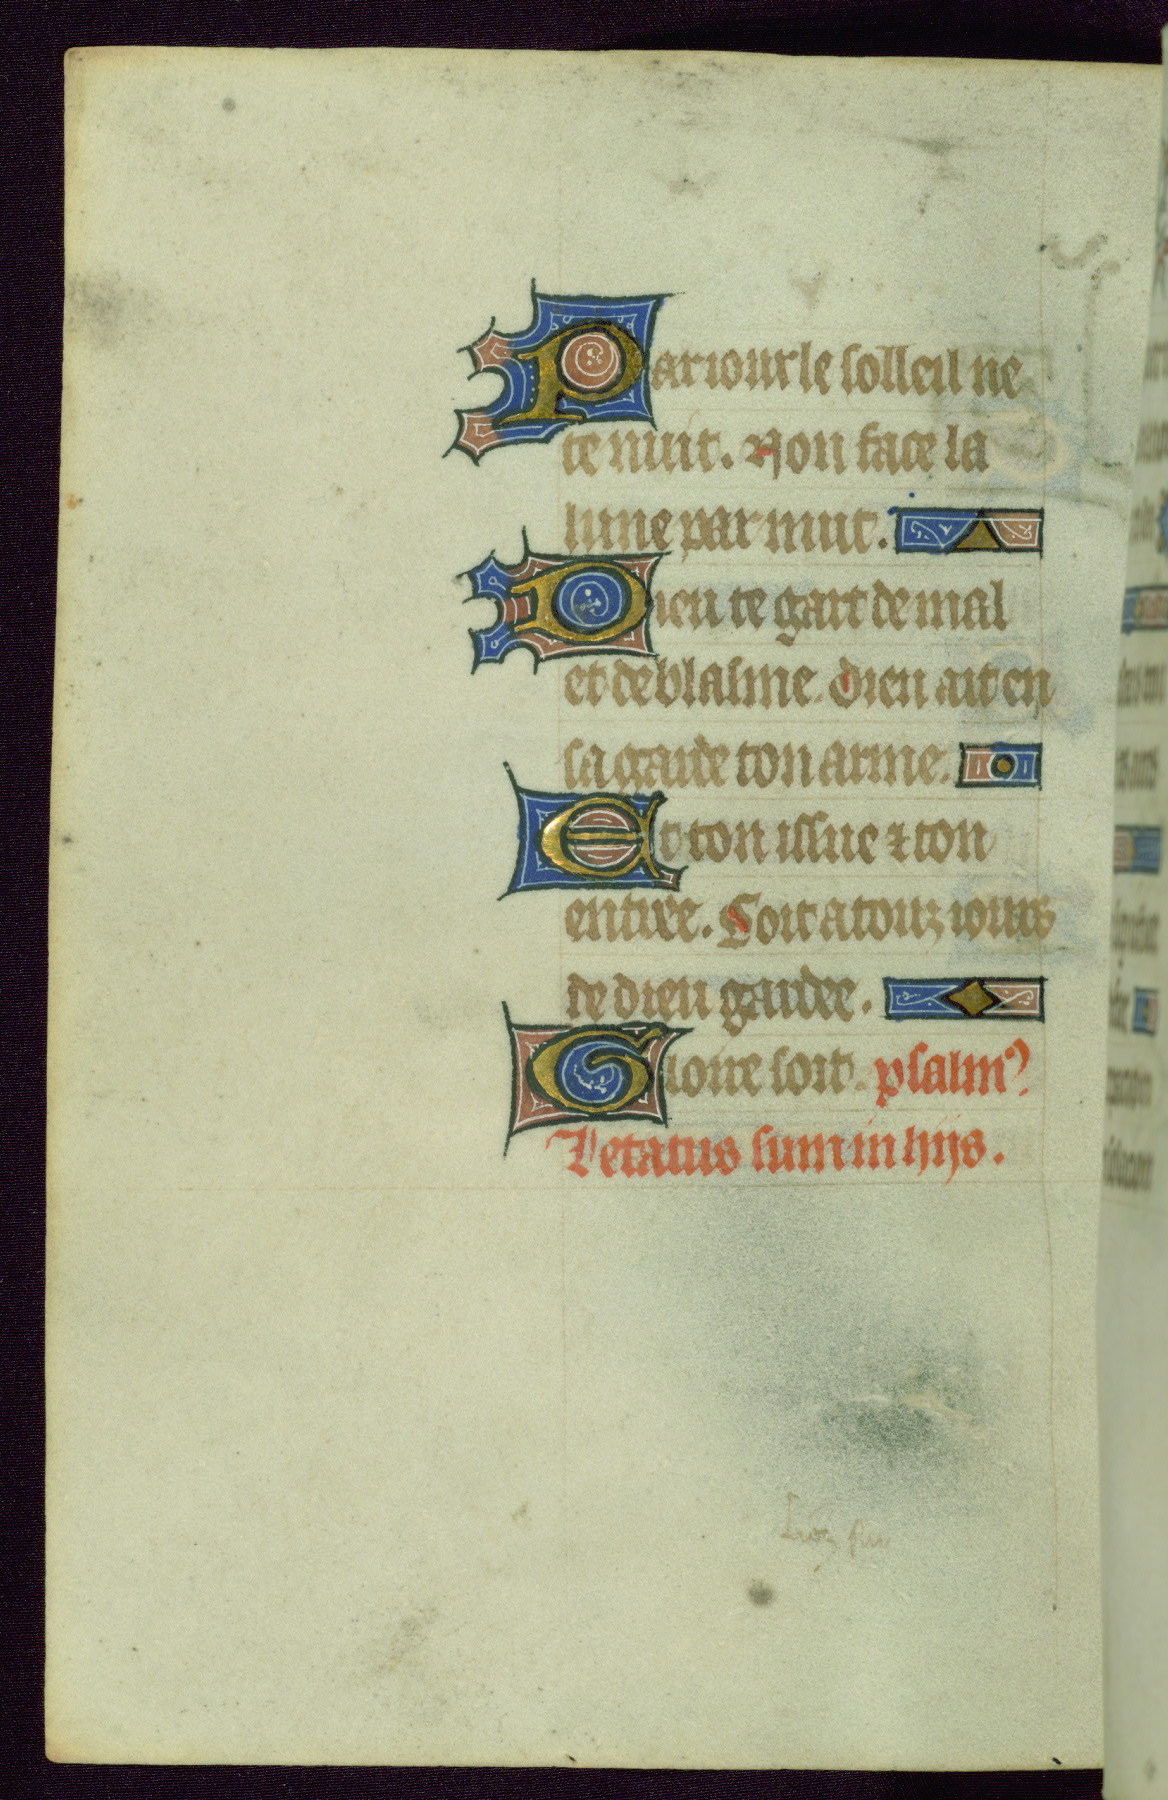 Par iour le solleil ne
te nuit. Non face la
lune par nuit.
Dieu te gart de mal
et de blasme. dieu ait en
sa garde ton arme.
Et ton issue ⁊ ton
entree. Soit a touz iours
de dieu gardee.
Gloire soit. psalm9
Letatus sum in hijs.